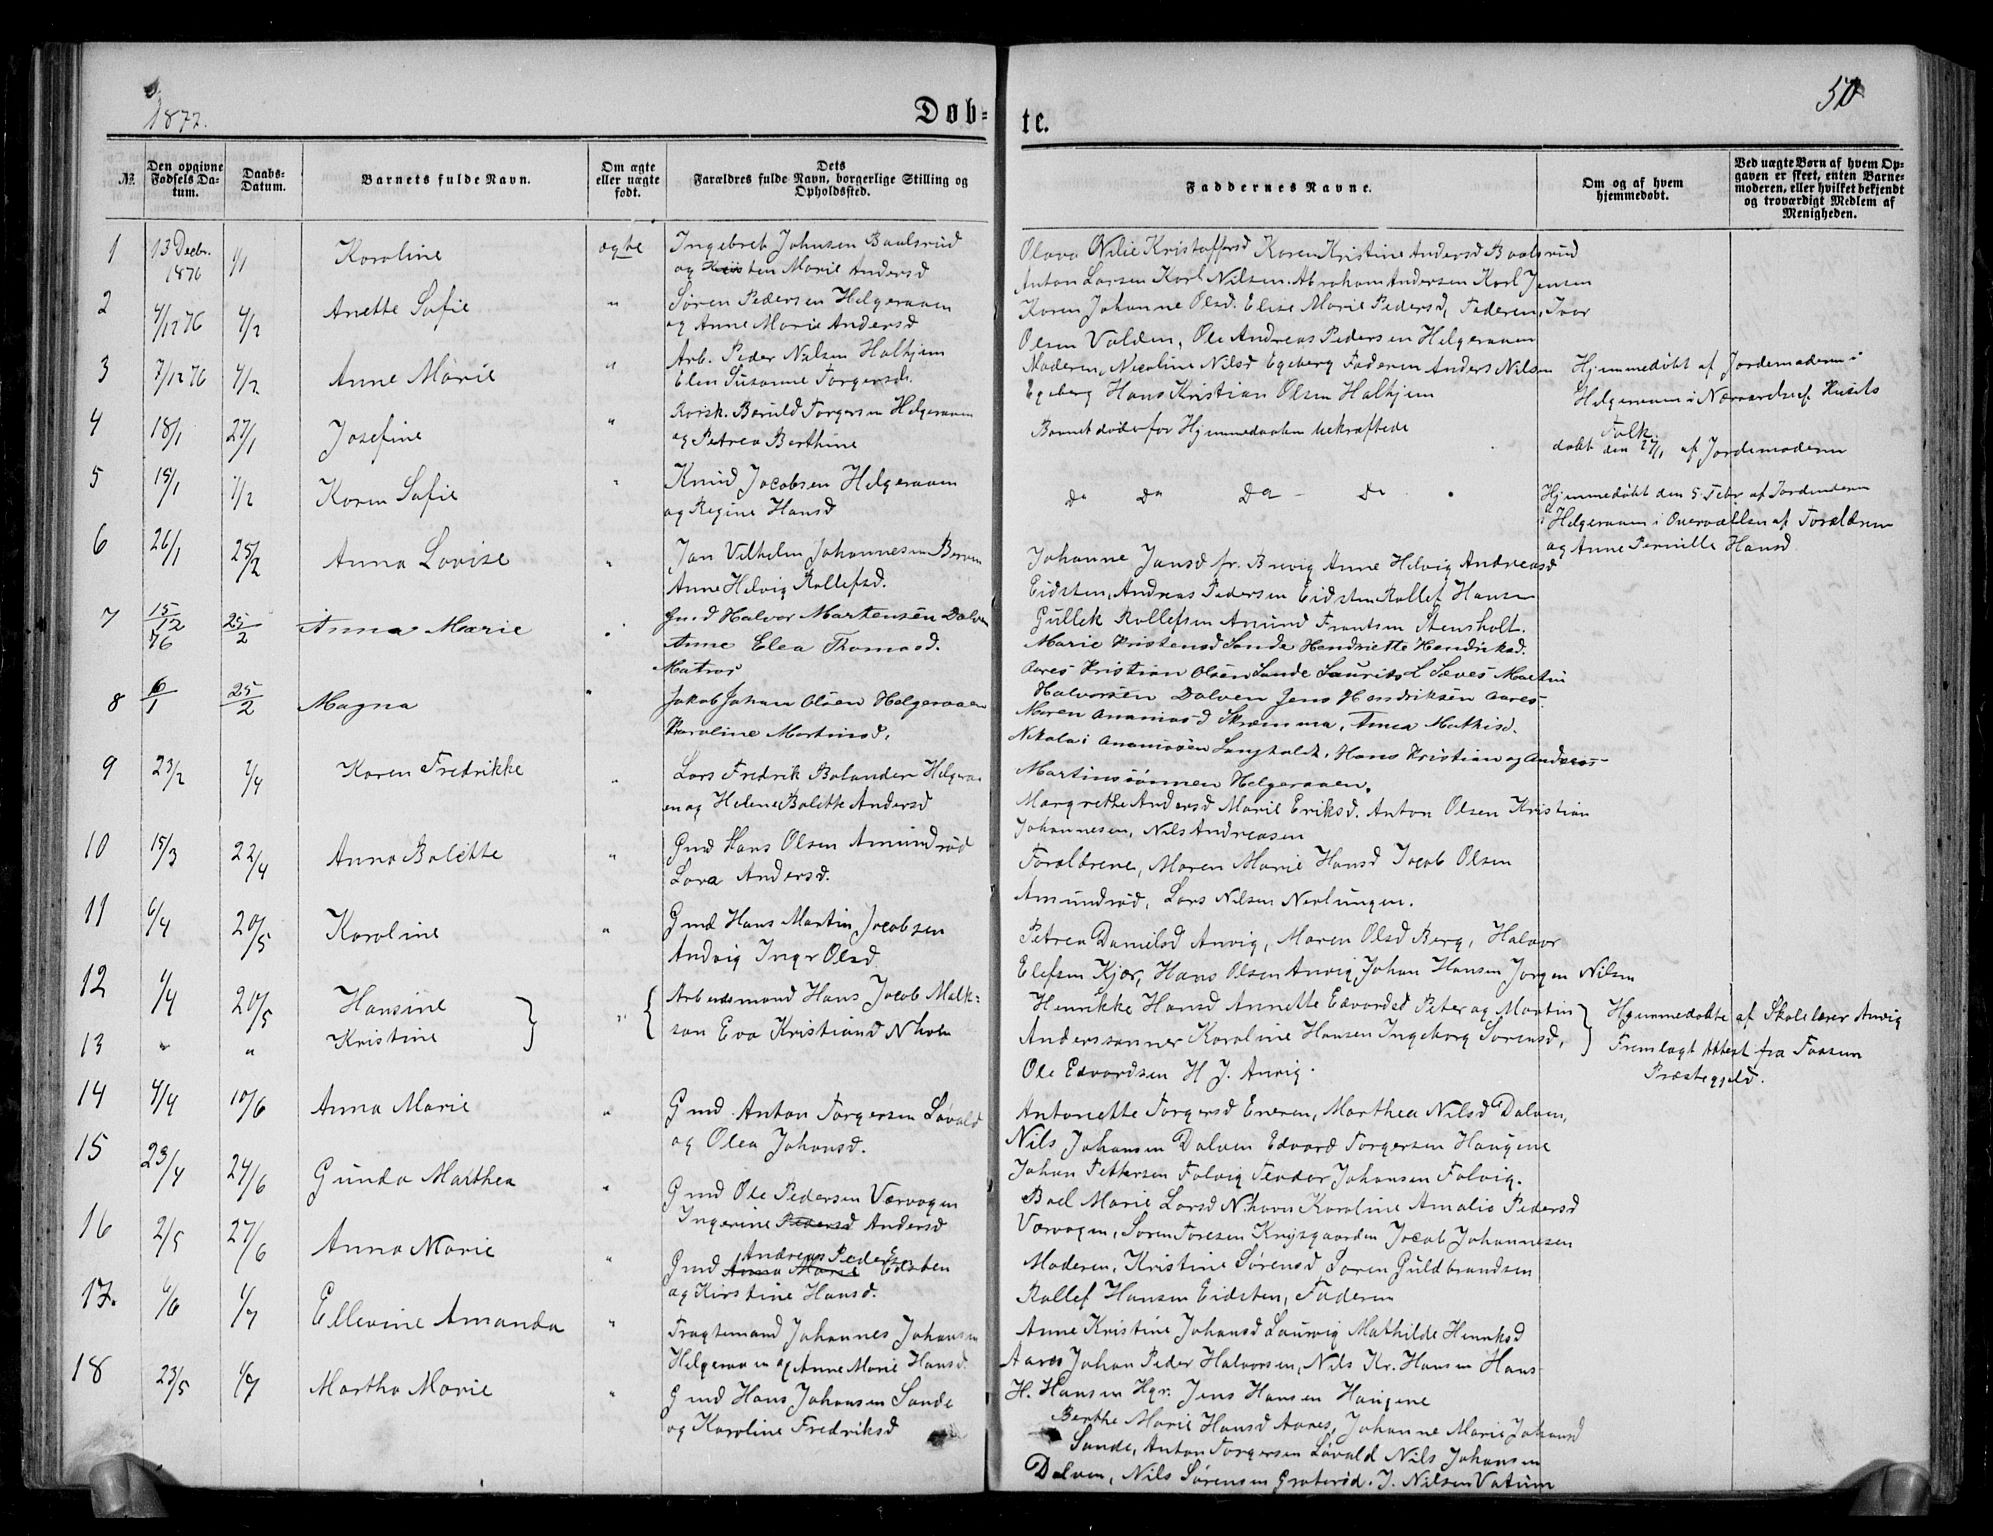 1877.
Døb-
te.
50
№.
Den opgivne Fødsels Da-tum.
Daabs-Datum.
Barnets fulde Navn.
Om ægte eller uægte født.
Dets Forældres fulde Navn, borgerlige Stilling og Opholdssted.
Faddernes Navne.
Om og af hvem hjemmedøbt.
Ved uægte Børn af hvem Op-gaven er skeet, enten Barne-moderen, eller hvilket bekjendt og troværdigt Medlem af Menigheden.
1 13 Decbr. 1876 1/1 Karoline ægte Ingebret Johnsen Baalsrud
og Kirsten Marie Andersd
Olava Nilie Kristoffersd Karen Kristine Andersd Baalsrud
Anton Larsen Karl Nilsen Abraham Andersen Karl Jensen
2 4/12 76 4/2 Anette Sofie " Søren Pedersen Helgeraaen
og Anne Marie Andersd
Karen Johanne Olsd. Elise Marie Pedersd, Faderen, Ivar
Olsen Valden, Ole Andreas Pedersen Helgeraaen
3 7/12 76 4/2 Anne Marie " Arb. Peder Nilsen Halhjem
Elen Susanne Torgersd.
Moderen, Nicoline Nilsd Egeberg Faderen Anders Nilsen
Egeberg Hans Kristian Olsen Halhjem
Hjemmedøbt af Jordemoderen i
Helgeraaen i Nærværelse af Husets
Folk.
4 18/1 27/1 Josefine " Berild Torgersen Helgeraaen
og Petrea Berthine
Barnet døde før Hjemmedaaben bekræftede
døbt den 27/1 af Jordemoderen
5 15/1 1/2 Karen Sofie " Knud Jacobsen Helgeraaen
og Regine Hansd
Do Do Do - Do
Hjemmedøbt den 5 Febr af Jordemoderen
i Helgeraaen i Overværelse af Forældrene
og Anne Pernille Hansd
6 26/1 25/2 Anna Lovise " Jan Vilhelm Johannesen
Anne Helvig Rollefsd.
Johanne Jansd fr. Brevig Anne Helvig Andreasd
Eidsten, Andreas Pedersen Eidsten Rollef Hansen
Gullek Rollefsen Amund Frantsen Stensholt.
7 15/12 76 25/2 Anna Marie " Gmd Halvor Martensen Dalven
Anne Elea Thomasd.
Marie Kristensd Sande Hendriette Hendriksd.
Aares Kristian Olsen Sande Laurits L Sæves Martin
Halvorsen Dalven Jens Hendriksen Aares
8 6/1 25/2 Magna " Matros
Jakob Johan Olsen Helgeraaen
Karoline Martinsd.
Maren Ananiasd Skramma, Anna Mathisd.
Nikolai Ananiasen Langholdt, Hans Kristian og Andreas
Martinssønnen Helgeraaen.
9 23/2 2/4 Karen Fredrikke " Lars Fredrik Bolander Helgeraa
en og Helene Bolette Andersd
Margrethe Andersd Marie Eriksd. Anton Olsen Kristian
Johannesen, Nils Andreasen
10 15/3 22/4 Anna Bolette " Gmd Hans Olsen Amundrød
Lara Andersd.
Forældrene, Maren Marie Hansd Jacob Olsen
Amundrød, Lars Nilsen Nevlungen.
11 6/4 20/5 Karoline " Gmd Hans Martin Jacobsen
Andvig Ingr Olsd
Petrea Danielsd Anvig, Maren Olsd Berg, Halvor
Elefsen Kjær, Hans Olsen Anvig, Johan Hansen Jørgen Nilsen
12 1/4 20/5 Hansine } " { Arbeidsmand Hans Jacob Malk-
13 " " Kristine
son Eva Kristiansd Nhavn
Henrikke Hansd Annette Edvardsd Peter og Martin
Anderssønner Karoline Hansen Ingeborg Sørensd,
Ole Edvardsen H J. Anvig.
} Hjemmedøbte af Skolelærer Anvig
Fremlagt Attest fra Fossum
Præstegjeld.
14 4/4 10/6 Anna Marie " Gmd. Anton Torgersen Løvald
og Olea Johansd.
Antonette Torgersd Eneren, Marthea Nilsd Dalven,
Nils Johansen Dalven Edvard Torgersen Haugene
Johan Pettersen Folvig Teodor Johansen Folvig.
15 23/4 24/6 Gunda Marthea " Gmd Ole Pedersen Værvagen
Ingerine Pedersd Andersd
Boel Marie Larsd Nhavn Karoline Amalie Pedersd
Værvagen, Søren Toresen Krygsgaarden Jacob Johannesen
16 2/5 27/6 Anna Marie " Gmd Andreas Peders Anna Marie Eidsten
og Kirstine Hansd.
Moderen, Kristine Sørensd Søren Guldbrandsen
Rollef Hansen Eidsten, Faderen
17. 6/6 1/7 Ellevine Amanda " Fragtemand Johannes Johansen
Helgeraaen og Anne Marie Hansd
Anne Kristine Johansd Laurvig Mathilde Henriksd
Aares Johan Peder Halvorsen, Nils Kr. Hansen Hans
H. Hansen Hgr. Jens Hansen Haugene
18 23/5 1/7 Martha Marie " Gmd Hans Johansen Sande
og Karoline Fredriksd
Berthe Marie Hansd Aares, Johanne Marie Johansd
Sande, Anton Torgersen Løvald Nils Johansen
Dalven, Nils Sørensen Graterød. J. Nilsen Vatum